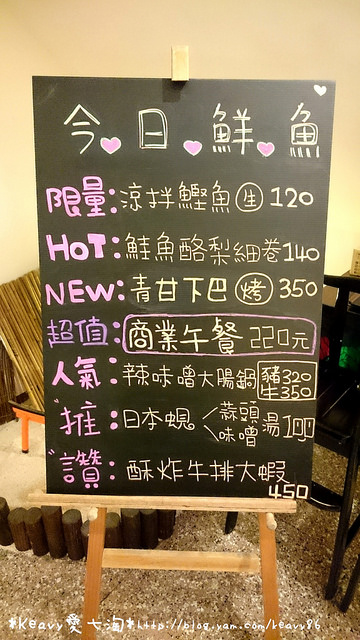 今日鮮魚
限量:涼拌鰹魚(生)120
HOT:鮭魚酪梨細卷140
NEW:青甘下巴(烤)350
超值:商業午餐 220元
人氣:辣味噌大腸鍋 豬320
牛350
"推:日本蜆<蒜頭湯100
味噌
"讚:酥炸牛排大蝦
450
*Keavy愛ㄊ淘*http://blog.yam.com/keavy86